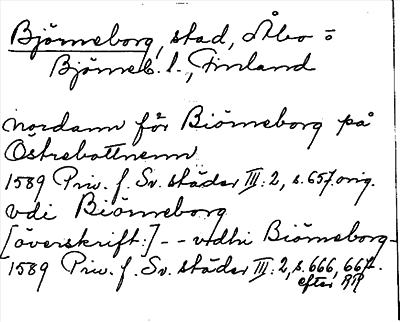 Björneborg, stad, Åbo o
Björneb. l., Finland
Nordann för Biörneborg på
Östrebottnenn
1589 Priv. f. Sv. städer III: 2, s. 657. orig.
vdi Biörneborg
[överskrift:] - - vdhi Biörneborg -
1589 Priv. f. Sv. städer III: 2, s. 666, 667.
efter RR